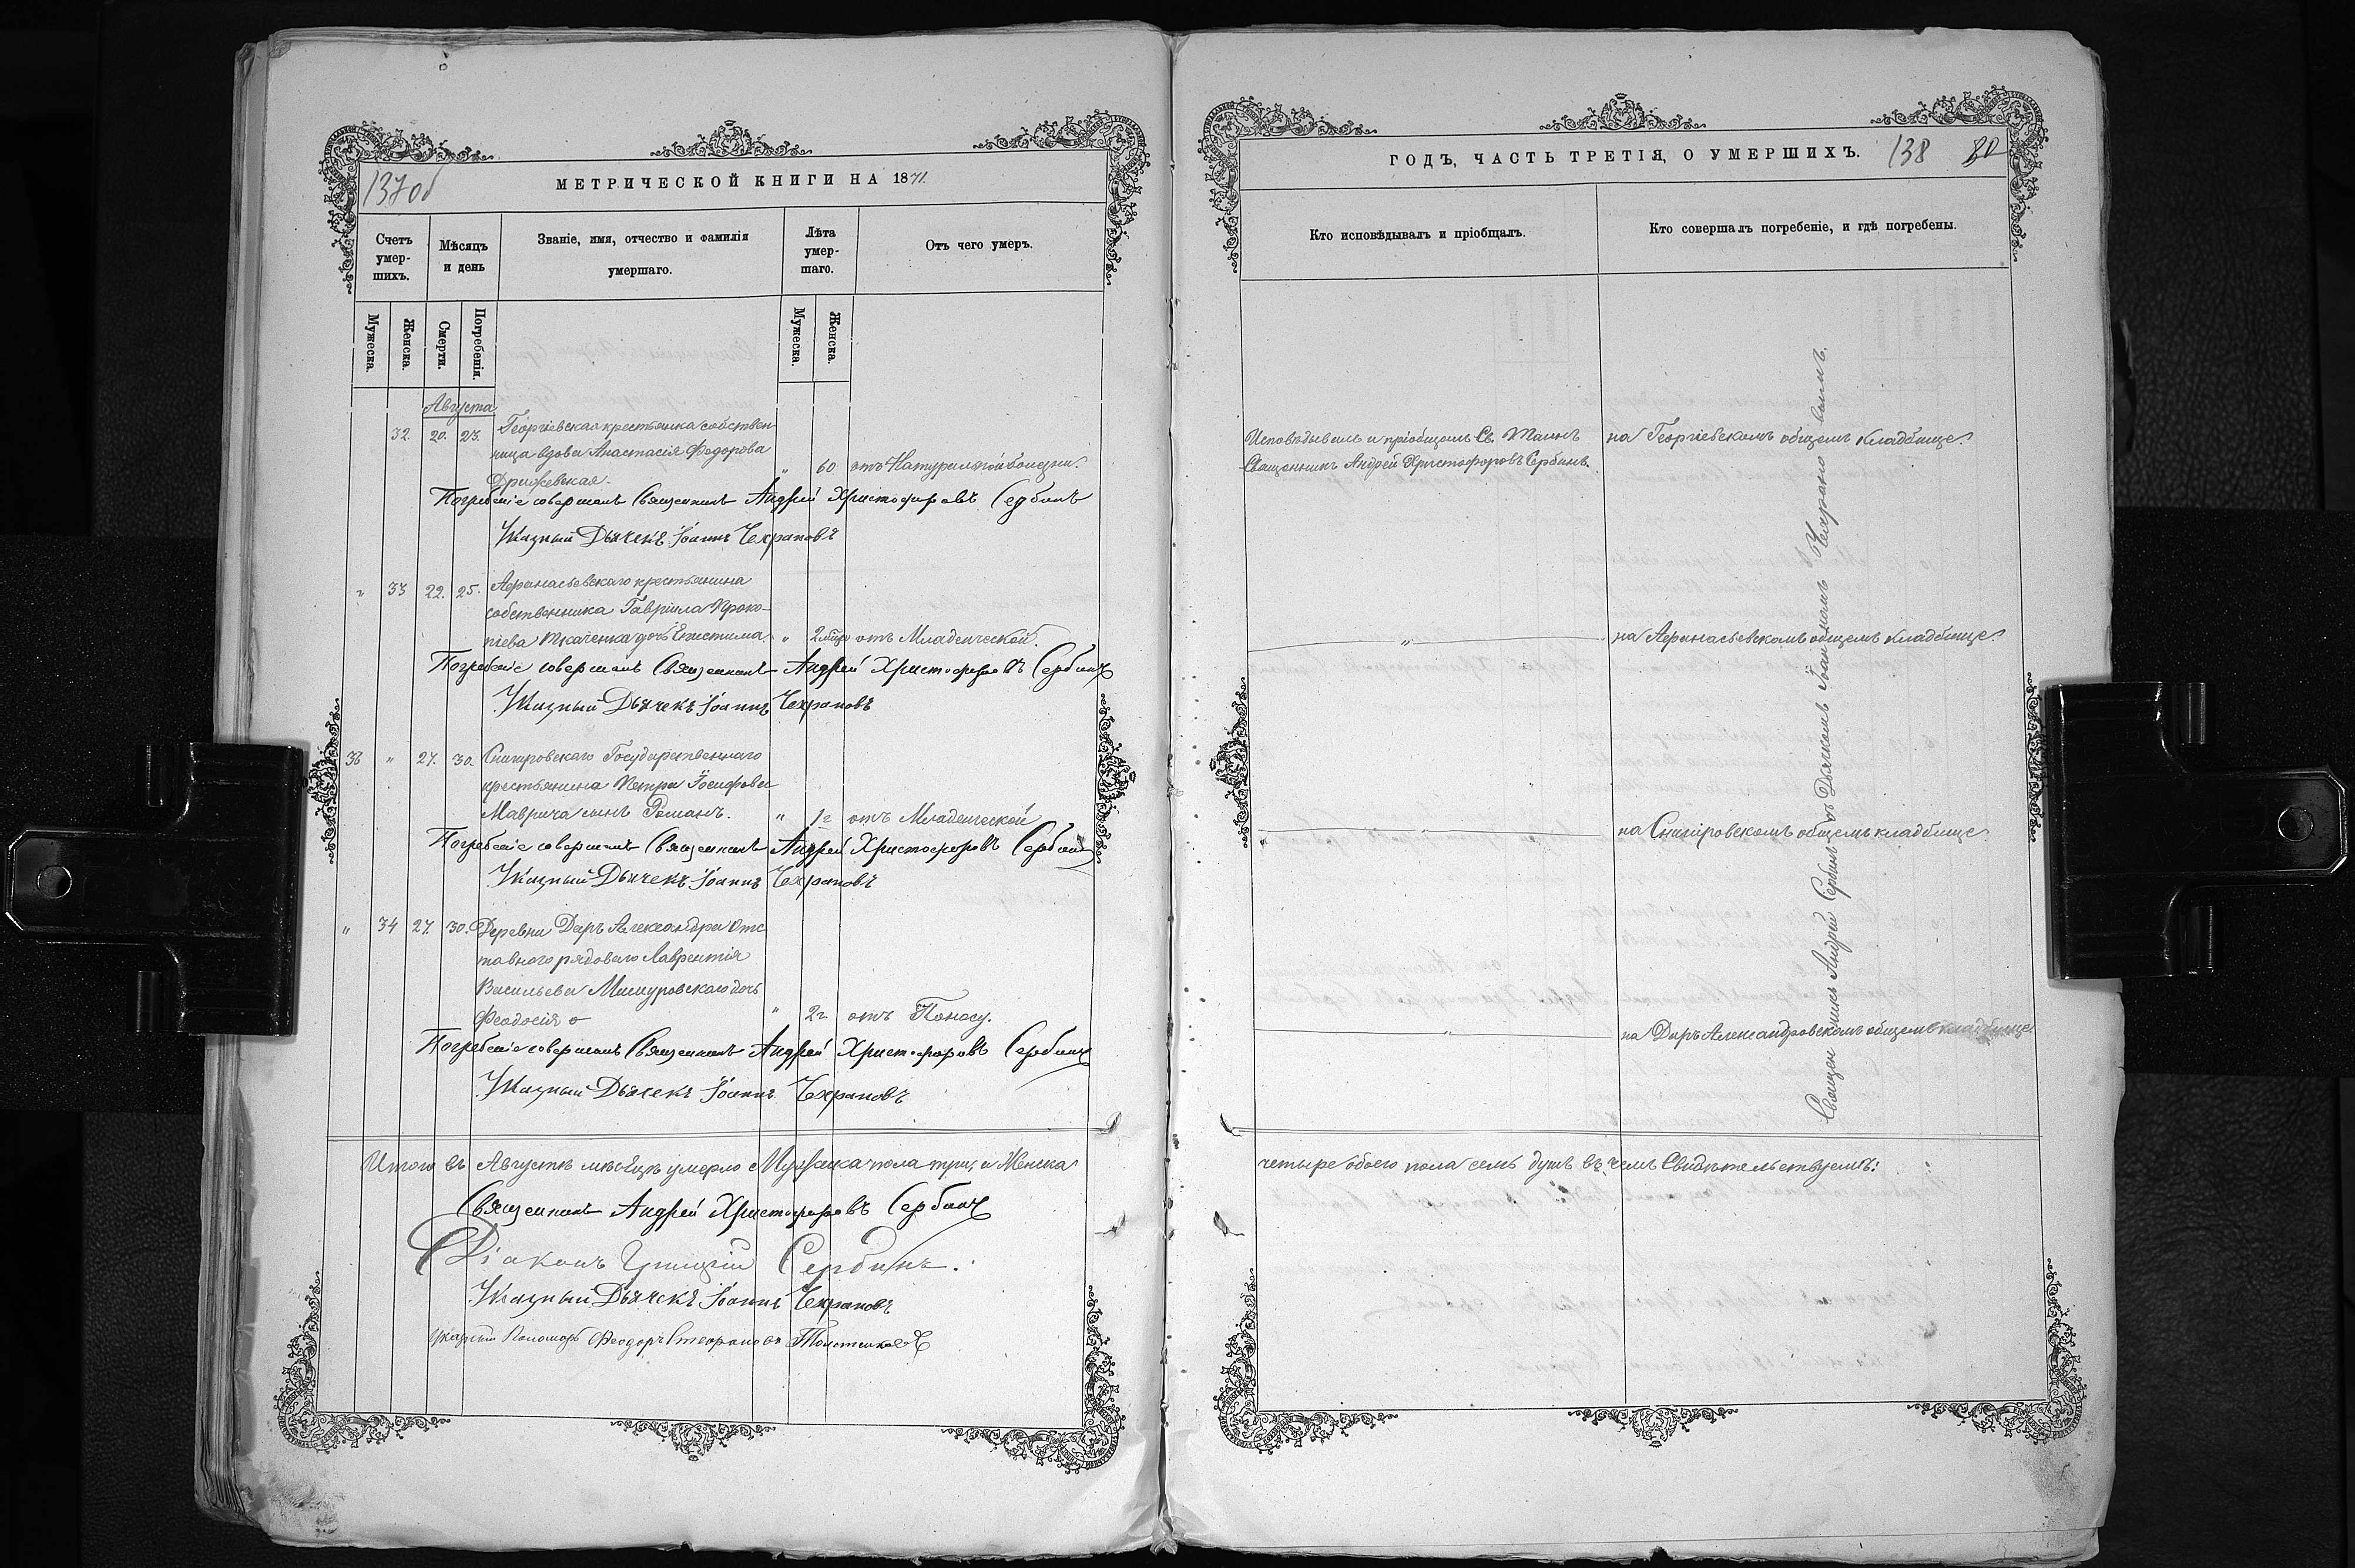 137об
МЕТРИЧЕСКОЙ КНИГИ НА 1871.
Счетъ умер-шихъ.
Мѣсяцъ и день
Званіе, имя, отчество и фамилія умершаго.
Лѣта умер-шаго.
Отъ чего умеръ.
Мужеска.
Женска.
Смерти.
Погребенія.
Мужеска.
Женска.
Августа
32. 20. 23. Георгіевская крестьянка собствен-
ница вдова Анастасія Федорова " 60 отъ Натуральной болезни.
Дрижевская.
Погребеніе совершалъ Священникъ Андрей Христофоровъ Сербинъ
Указный Дьячекъ Іоаннъ Чехрановъ
" 33 22. 25. Афанасьевскаго крестьянина
собственника Гавріила Проко-
піева Ткаченка дочь Епистима. " 2 отъ Младенческой.
Погребеніе совершалъ Священникъ Андрей Христофоровъ Сербинъ
Указный Дьячекъ Іоаннъ Чехрановъ
36 " 27. 30. Снигировскаго Государственнаго
крестьянина Петра Іосифова
Маврича сынъ Романъ. " 1г отъ Младенческой
Погребеніе совершалъ Священникъ Андрей Христофоровъ Сербинъ
Указный Дьячекъ Іоаннъ Чехрановъ
" 34 27. 30. Деревни Даръ Александра Отс
тавного рядового Лаврентія
Васильева Мишуровскаго дочь
Феодосія " 2г отъ Поносу.
Погребеніе совершалъ Священникъ Андрей Христофоровъ Сербинъ
Указный Дьячекъ Іоаннъ Чехрановъ
Итого въ Августѣ мѣсяцѣ умерло Мужеска пола три, а Женска
Священникъ Андрей Христофоровъ Сербинъ
Діаконъ Григрій Сербинъ.
Указный Дьячекъ Іоаннъ Чехрановъ
Указный Пономарь Феодоръ Стефановъ
ГОДЪ, ЧАСТЬ ТРЕТІЯ, О УМЕРШИХЪ.
138 80
Кто исповѣдывалъ и пріобщалъ.
Кто совершалъ погребеніе, и гдѣ погребены.
Исповѣдывалъ и пріобщалъ Св. Таинъ на Георгіевскомъ общемъ кладбище.
Священникъ Андрей Христофоровъ Сербинъ.
" на Афанасьевскомъ общемъ кладбище.
" на Снигировскомъ общемъ кладбище
" на Даръ Александровскомъ общемъ кладбище
Священникъ Андрей Сербинъ съ Дьякомъ Іоанномъ Чехрановымъ.
четыре обоего пола семь душъ въ чемъ Свидѣтельствуемъ: